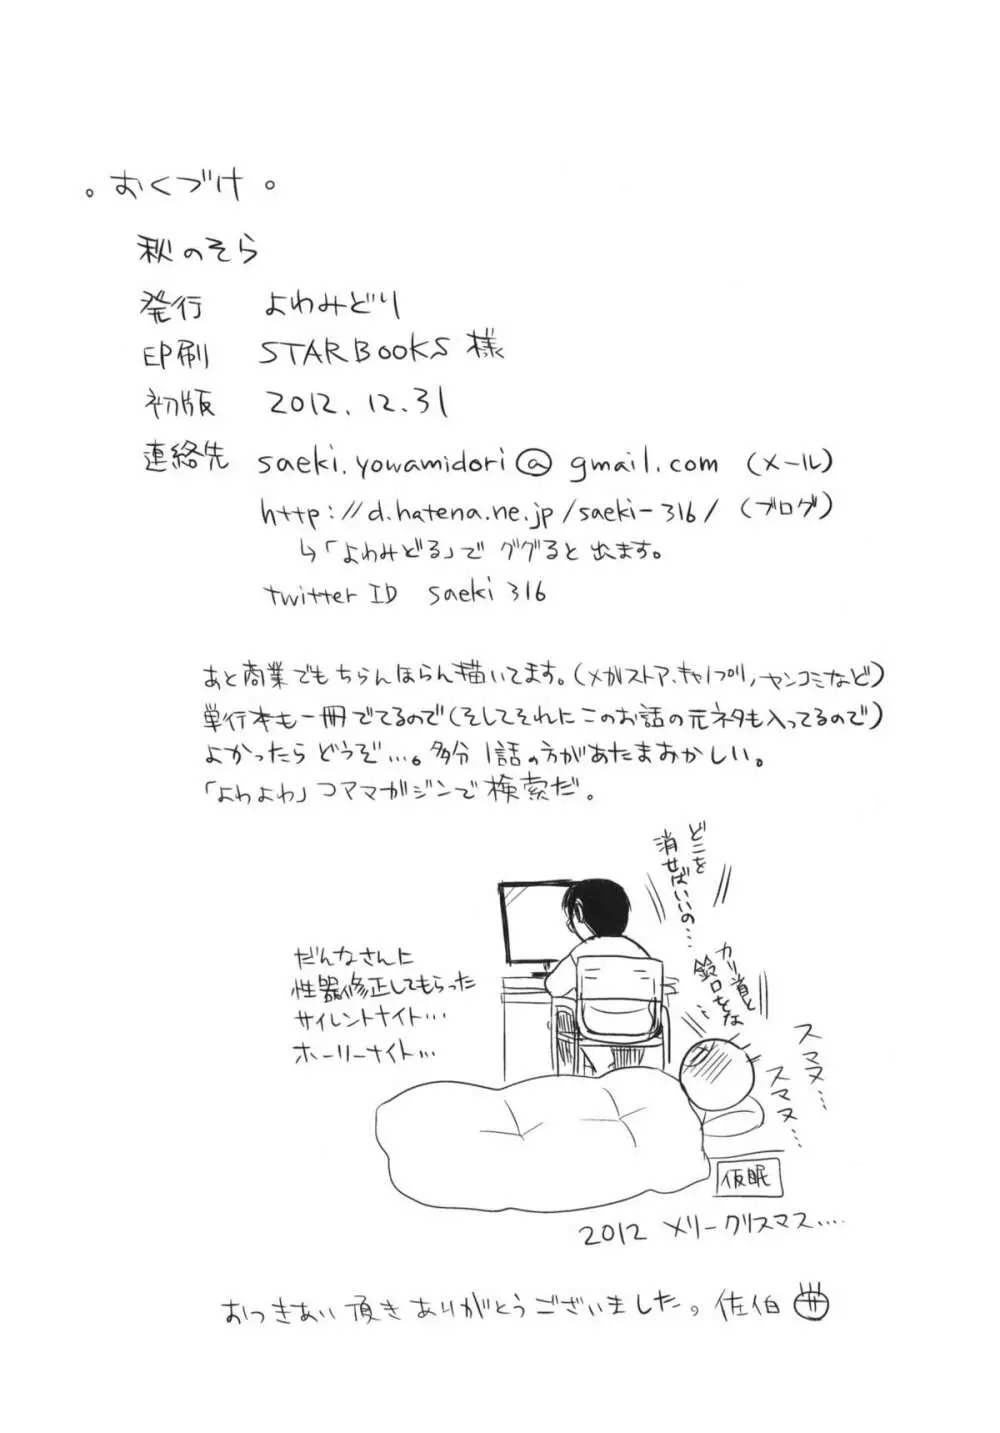 。おくづけ。
秋のそら
発行 よわみどり
印刷 STARBOOKS 様
初版 2012.12.31
連絡先 saeki.yowamidori@gmail.com (メール)
http://d.hatena.ne.jp/saeki-316/ (ブログ)
↳「よわみどる」で ググると出ます。
twitter ID saeki316
あと商業でもちらんほらん描いてます。(メガストア、キャノプリ、ヤンコミなど)
単行本も一冊でてるので(そしてそれにこのお話の元ネタも入ってるので)
よかったら どうぞ…。多分 1話の方があたまおかしい。
「よわよわ」コアマガジンで検索だ。
どこを
消せばいいの…
カリ首と
鈴口をな…
スマヌ…
スマヌ…
だんなさんに
性器修正してもらった
サイレントナイト…
ホーリーナイト…
仮眠
2012 メリークリスマス‥‥
おつきあい頂きありがとうございました。佐伯 サ